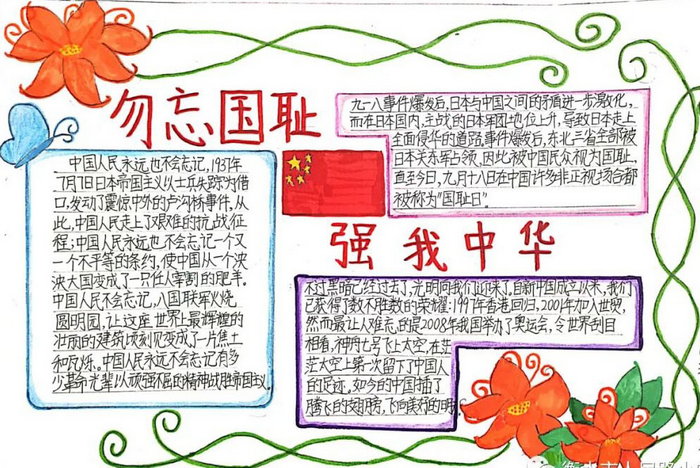 勿忘国耻
九一八事件爆发后,日本与中国之间的矛盾进一步激化,
而在日本国内,主战的日本军团地位上升,导致日本走上
全面侵华的道路,事件爆发后,东北三省全部被
日本关东军占领,因此被中国民众视为国耻,
直至今日,九月十八日在中国许多非正视场合都
被称为"国耻日"。
中国人民永远也不会忘记,1937年
7月7日日本帝国主义以士兵失踪为借
口,发动了震惊中外的卢沟桥事件,从
此,中国人民走上了艰难的抗战征
程;中国人民永远也不会忘记一个又
一个不平等的条约,使中国从一个泱
泱大国变成了一只任人宰割的肥羊。
中国人民不会忘记,八国联军火烧
圆明园,让这座世界上最辉煌的
壮丽的建筑顷刻见变成了一片焦土
和瓦烁。中国人民永远不会忘记有多
少革命先辈以顽强不屈的精神战胜帝国主义。
强我中华
不过黑暗已经过去了,光明向我们迎来了,自新中国成立以来,我们
已获得了数不胜数的荣耀:1997年香港回归,2001年加入世贸,
然而最让人难忘的是2008年我国举办了奥运会,令世界刮目
相看,神舟七号飞上太空,在茫
茫太空上第一次留下了中国人
的足迹,如今的中国插了
腾飞的翅膀,飞向美好的明